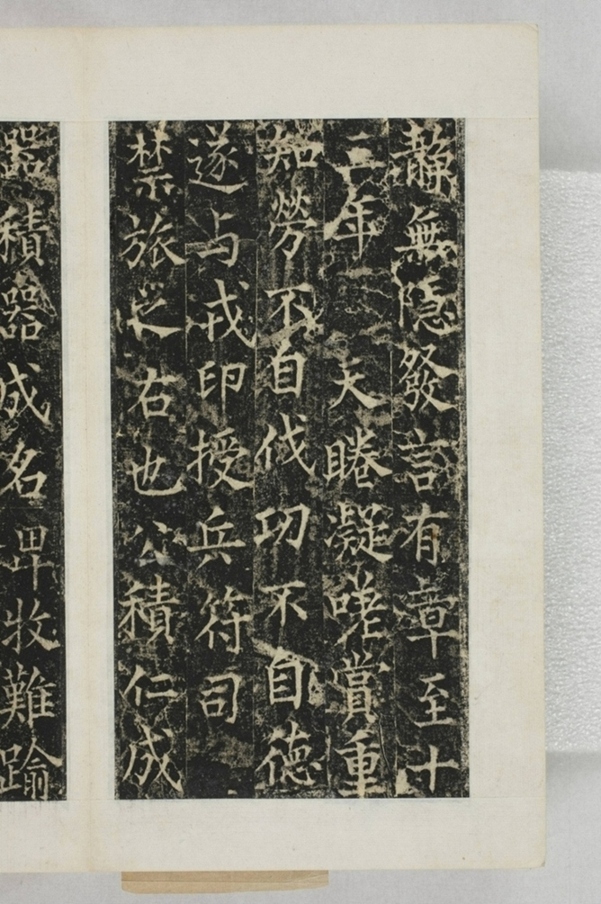 靜無隱發言有章至十
三年 天睠凝賞重
知勞不自伐功不自德
遂与戎印授兵符司
禁旅之右也公積仁成
器積器成名卑牧難踰